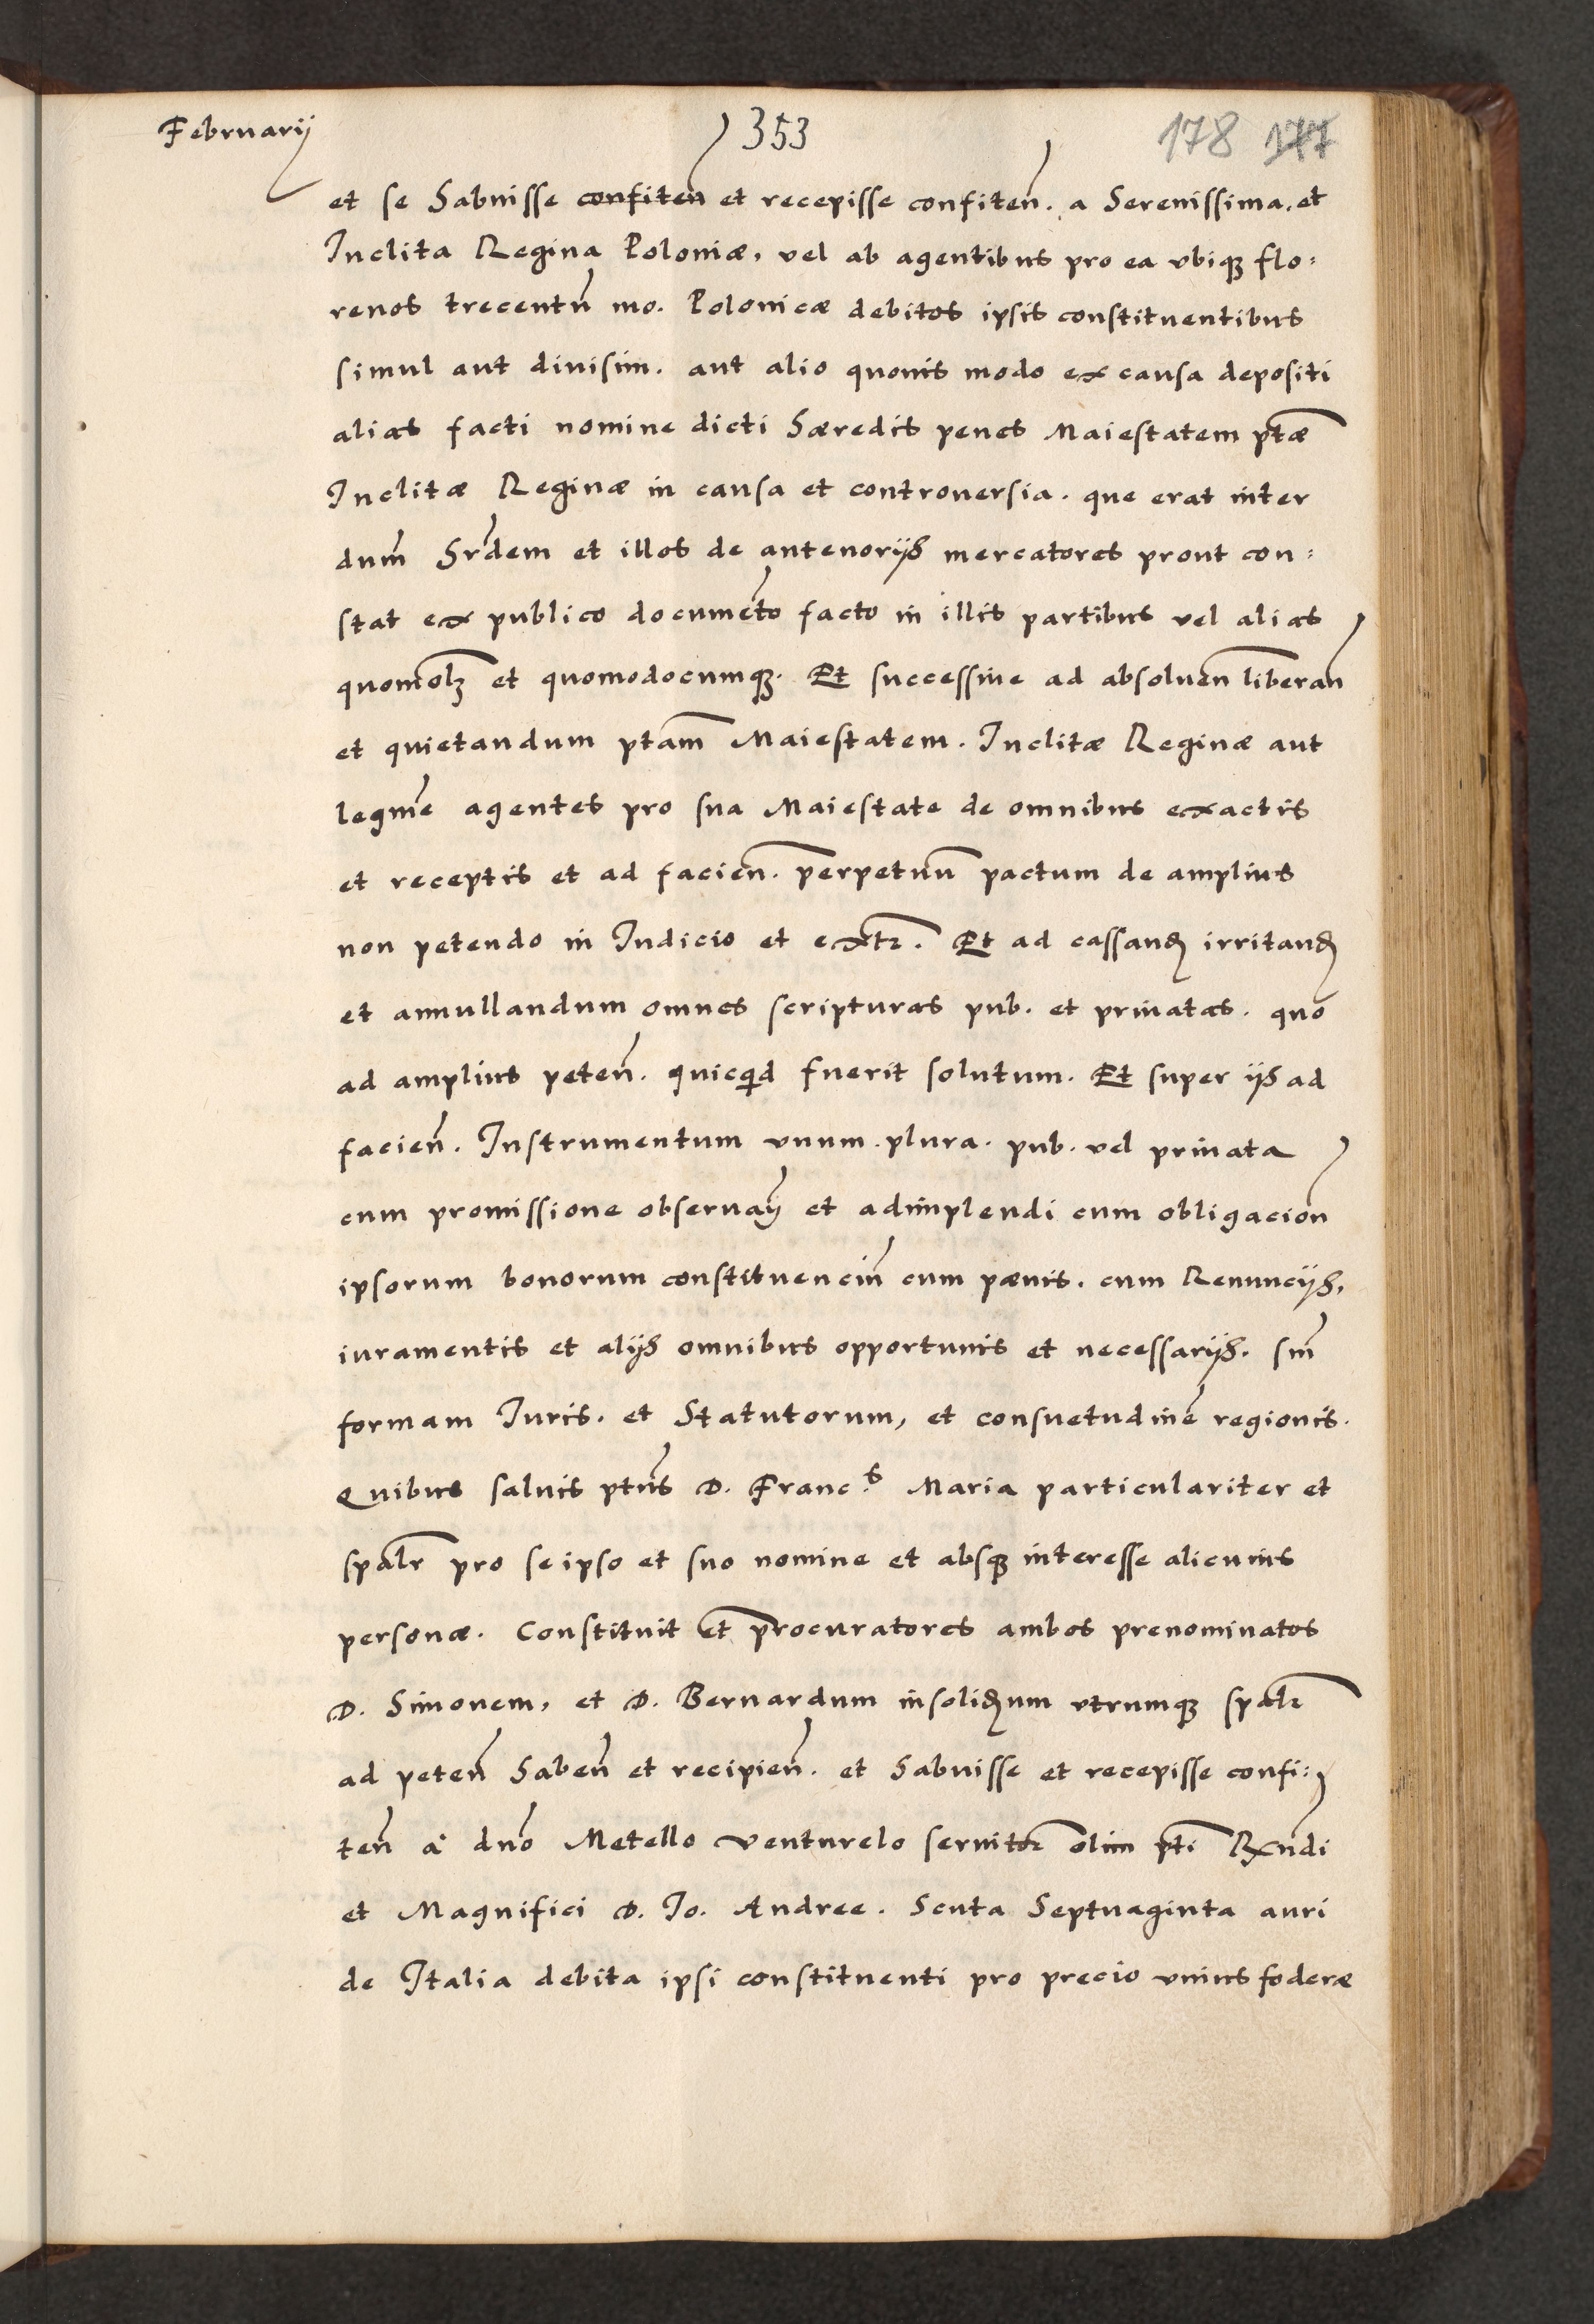 Februarij
353
178 177
et se habuisse confiteñ et recepisse confiteñ. a Serenissima. et
Inclita Regina Poloniæ, vel ab agentibus pro ea ubiqȝ flo:
renos trecentũ mo. Polonicæ debitos ipsis constituentibus
simul aut diuisim. aut alio quouis modo ex causa depositi
alias facti nomine dicti hæredis penes Maiestatem ptæ
Inclitæ Reginæ in causa et controuersia. que erat inter
dum̃ hr̃dem et illos de antenorijs mercatores prout con:
stat ex publico documẽto facto in illis partibus vel alias
quomõlȝ et quomodocumqȝ. Et successiue ad absoluen̄ liberan̄
et quietandum ptam̄ Maiestatem. Inclitæ Reginæ aut
legm̃e agentes pro sua Maiestate de omnibus exactis
et receptis et ad facien̄. perpetuũ pactum de amplius
non petendo in Iudicio et extr̄. Et ad cassanđ irritanđ
et annullandum omnes scripturas pub. et priuatas. quo
ad amplius peteñ. quicqđ fuerit solutum. Et super ijs ad
facieñ. Instrumentum vnum. plura. pub. vel priuata
cum promissione obseruaỹ et adimplendi cum obligacioñ
ipsorum bonorum constituenciũ cum pænis. cum Renuncijs,
iuramentis et alijs omnibus opportunis et necessarijs. sm̃
formam Iuris. et Statutorum, et consuetudinẽ regionis.
Quibus saluis ptũs D. Franc.s Maria particulariter et
spalr̄ pro se ipso et suo nomine et absqȝ interesse alicuius
personæ. Constituit et procuratores ambos prenominatos
D. Simonem, et D. Bernardum insoliđum utrumqȝ spalr̄
ad peteñ habeñ et recipieñ. et habuisse et recepisse confi:
teñ a dño Metello venturelo seruitor̄ olim pti Rx̃ndi
et Magnifici D. Io. Andree. Scuta Septuaginta auri
de Italia debita ipsi constituenti pro precio unius foderæ